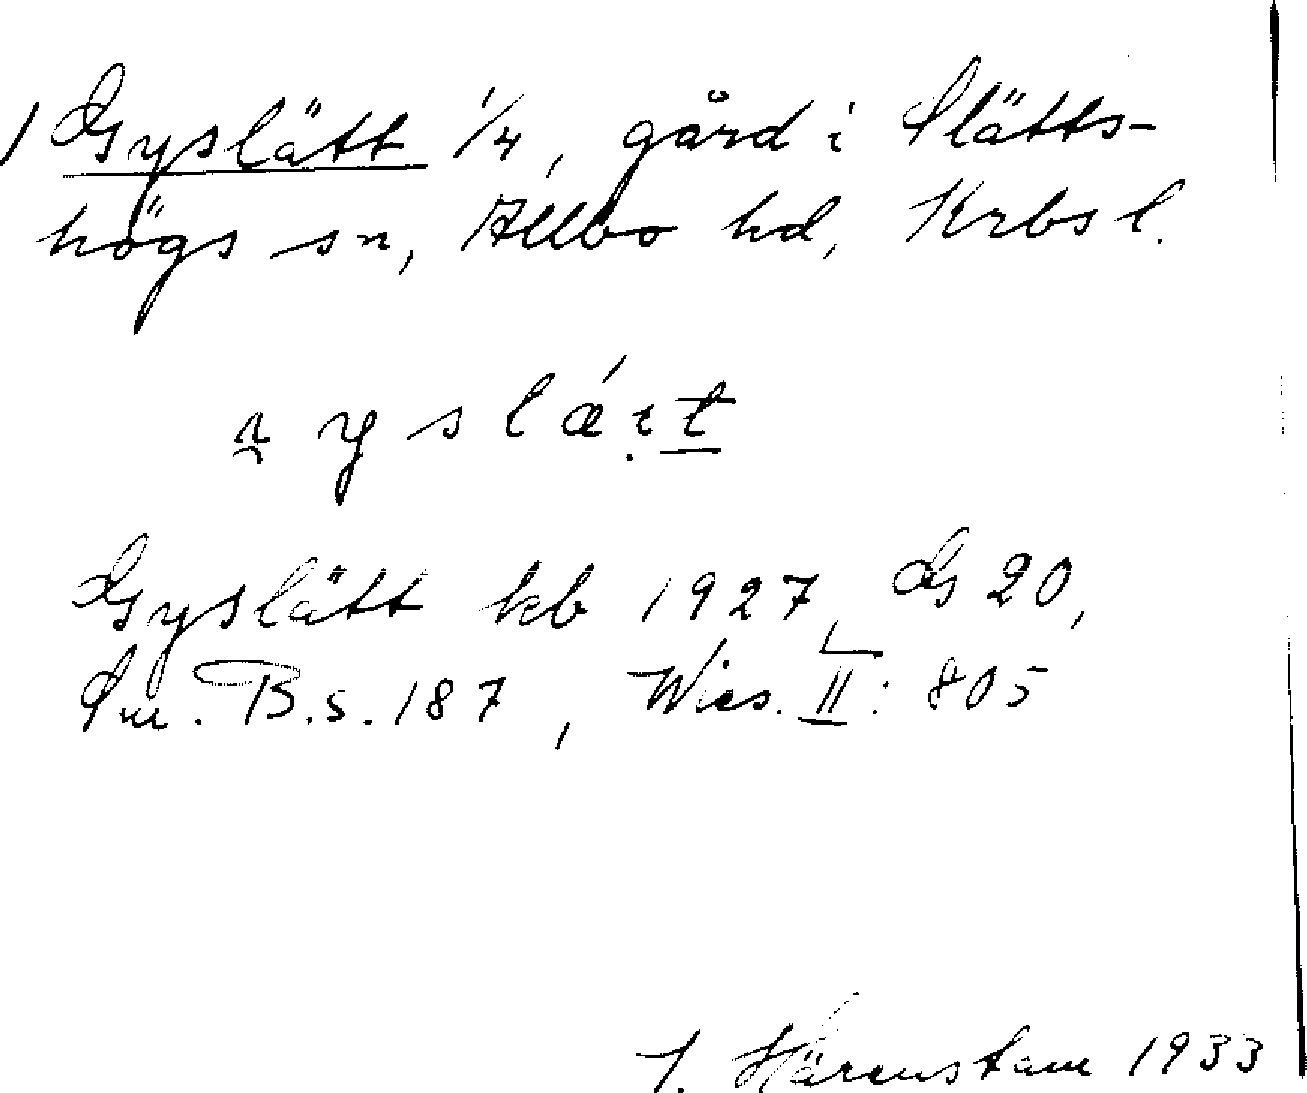 Gyslätt 1/4, gård i Slätts-
högs sn, Allbo hd, Krbs l.
Gyslätt kb 1927, GS 20,
Sm. B. s. 187, Wies. II: 805
Härenstam 1933